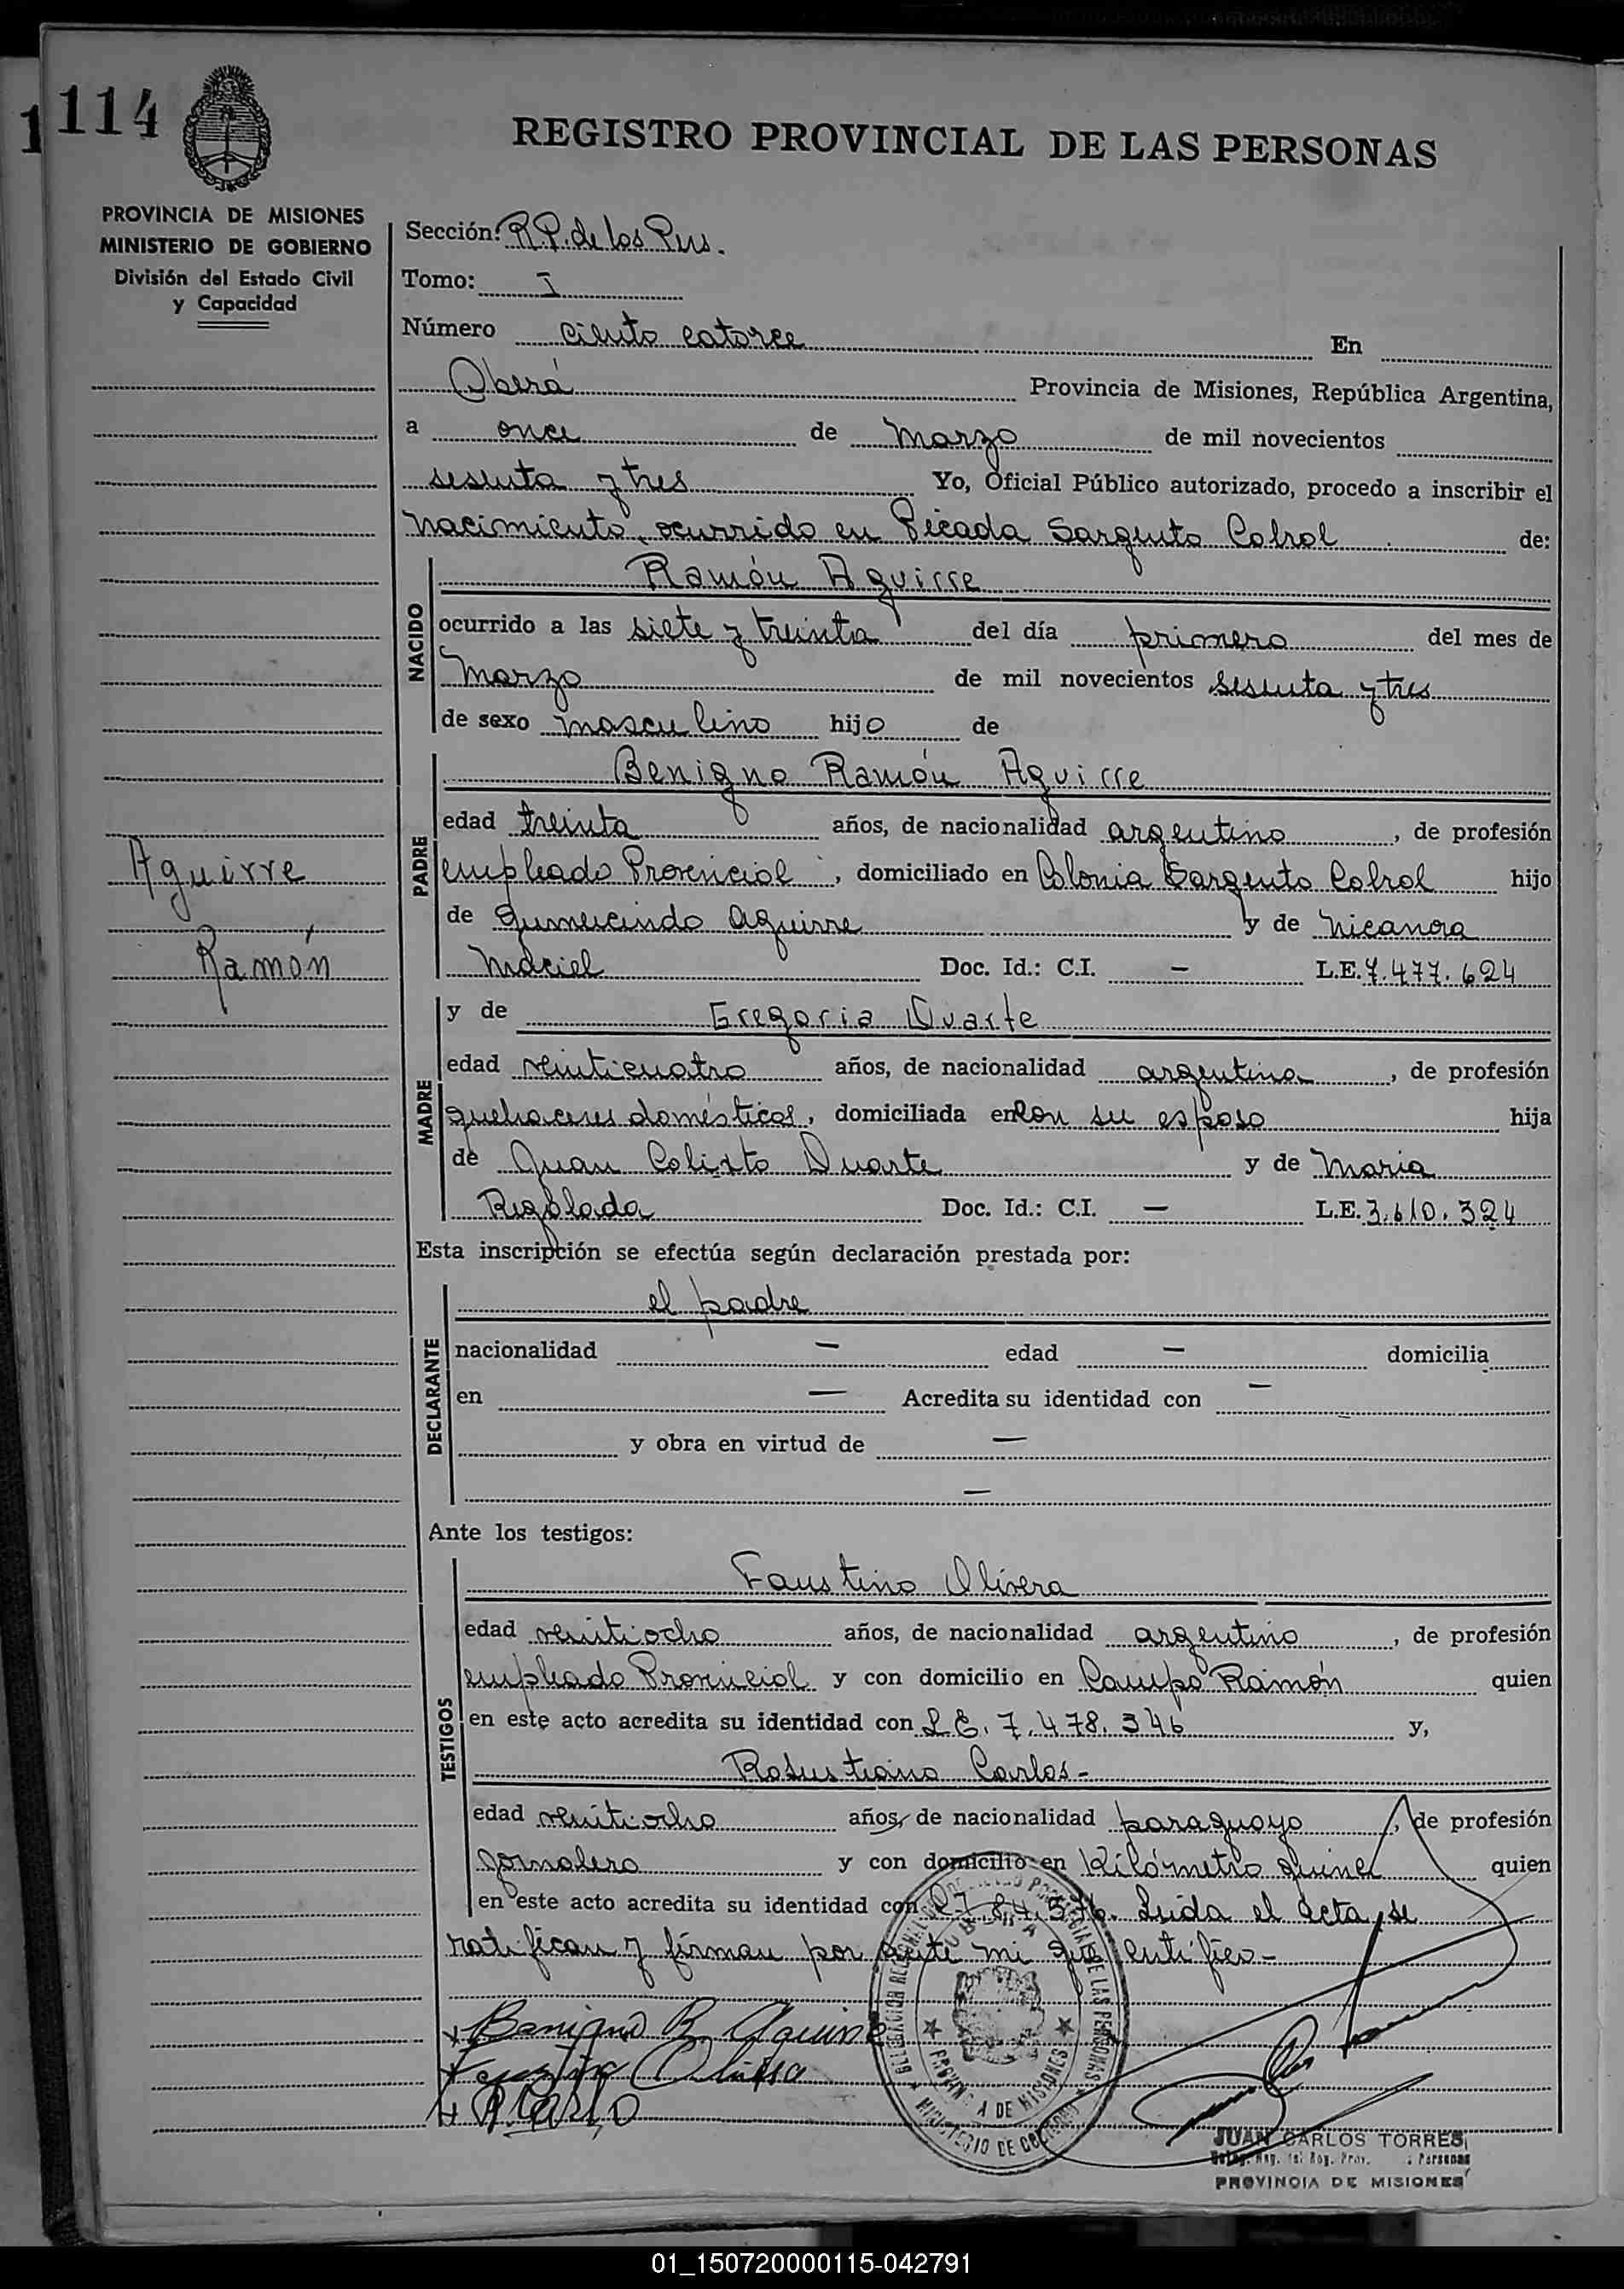 1 114
REGISTRO PROVINCIAL DE LAS PERSONAS
PROVINCIA DE MISIONES
MINISTERIO DE GOBIERNO
División del Estado Civil
y Capacidad
Sección: R.P. de las Pers.
Tomo: I
Número ciento catorce En
Oberá Provincia de Misiones, República Argentina,
a once de marzo de mil novecientos
sesenta y tres Yo, Oficial Público autorizado, procedo a inscribir el
nacimiento ocurrido en Picada Sargento Cabral de:
NACIDO
Ramón Aguirre
ocurrido a las siete y treinta del día primero del mes de
Marzo de mil novecientos sesenta y tres
de sexo masculino hijo de
PADRE
Benigno Ramón Aguirre
edad treinta años, de nacionalidad argentino, de profesión
empleado Provincial, domiciliado en Colonia Sargento Cabral hijo
de Gumercindo Aguirre y de Nicanora
Maciel Doc. Id.: C.I. — L.E. 7.477.624
Aguirre
Ramón
MADRE
y de Gregoria Duarte
edad veinticuatro años, de nacionalidad argentina, de profesión
quehaceres domésticos, domiciliada en con su esposo hija
de Juan Calixto Duarte y de Maria
Doc. Id.: C.I. — L.E. 3.610.324
Esta inscripción se efectúa según declaración prestada por:
DECLARANTE
el padre
nacionalidad — edad — domicilia
en — Acredita su identidad con —
y obra en virtud de —
—
Ante los testigos:
TESTIGOS
Faustino Olivera
edad veintiocho años, de nacionalidad argentino, de profesión
empleado Provincial y con domicilio en Campo Ramón quien
en este acto acredita su identidad con L.E. 7.478.346 y,
Carlos-
edad veintiocho años, de nacionalidad paraguayo, de profesión
jornalero y con domicilio en Kilómetro quien
en este acto acredita su identidad con Leida el acta, se
ratifican y firman por ante mi que certifico-
Benigno R. Aguirre
Faustino Olivera
JUAN CARLOS TORRES
PROVINCIA DE MISIONES
01_150720000115-042791